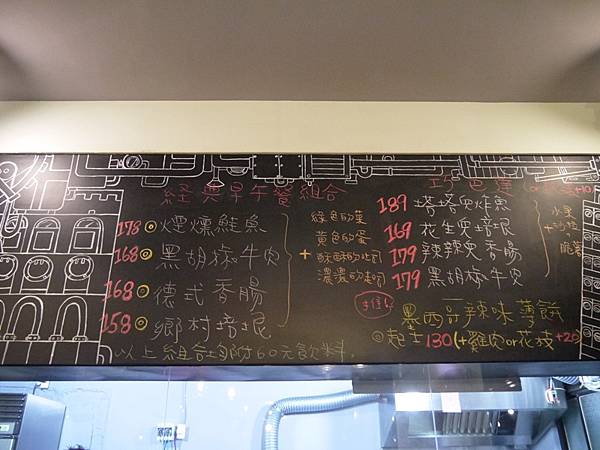 経典早午餐組合
178 煙燻鮭魚
168 黑胡椒牛肉
168 德式香腸
158 鄉村培根
+
綠色的菜
黃色的蛋
酥酥的吐司
濃濃的起司
以上組合均附60元飲料.
巧巴達
+10)
189 塔塔魚炸魚
169 花生臾培根
179 辣辣臾香腸
179 黑胡椒牛肉
+
水果
沙拉
脆薯
墨西哥辣味薄餅
起士130(+雞肉or花枝+20)